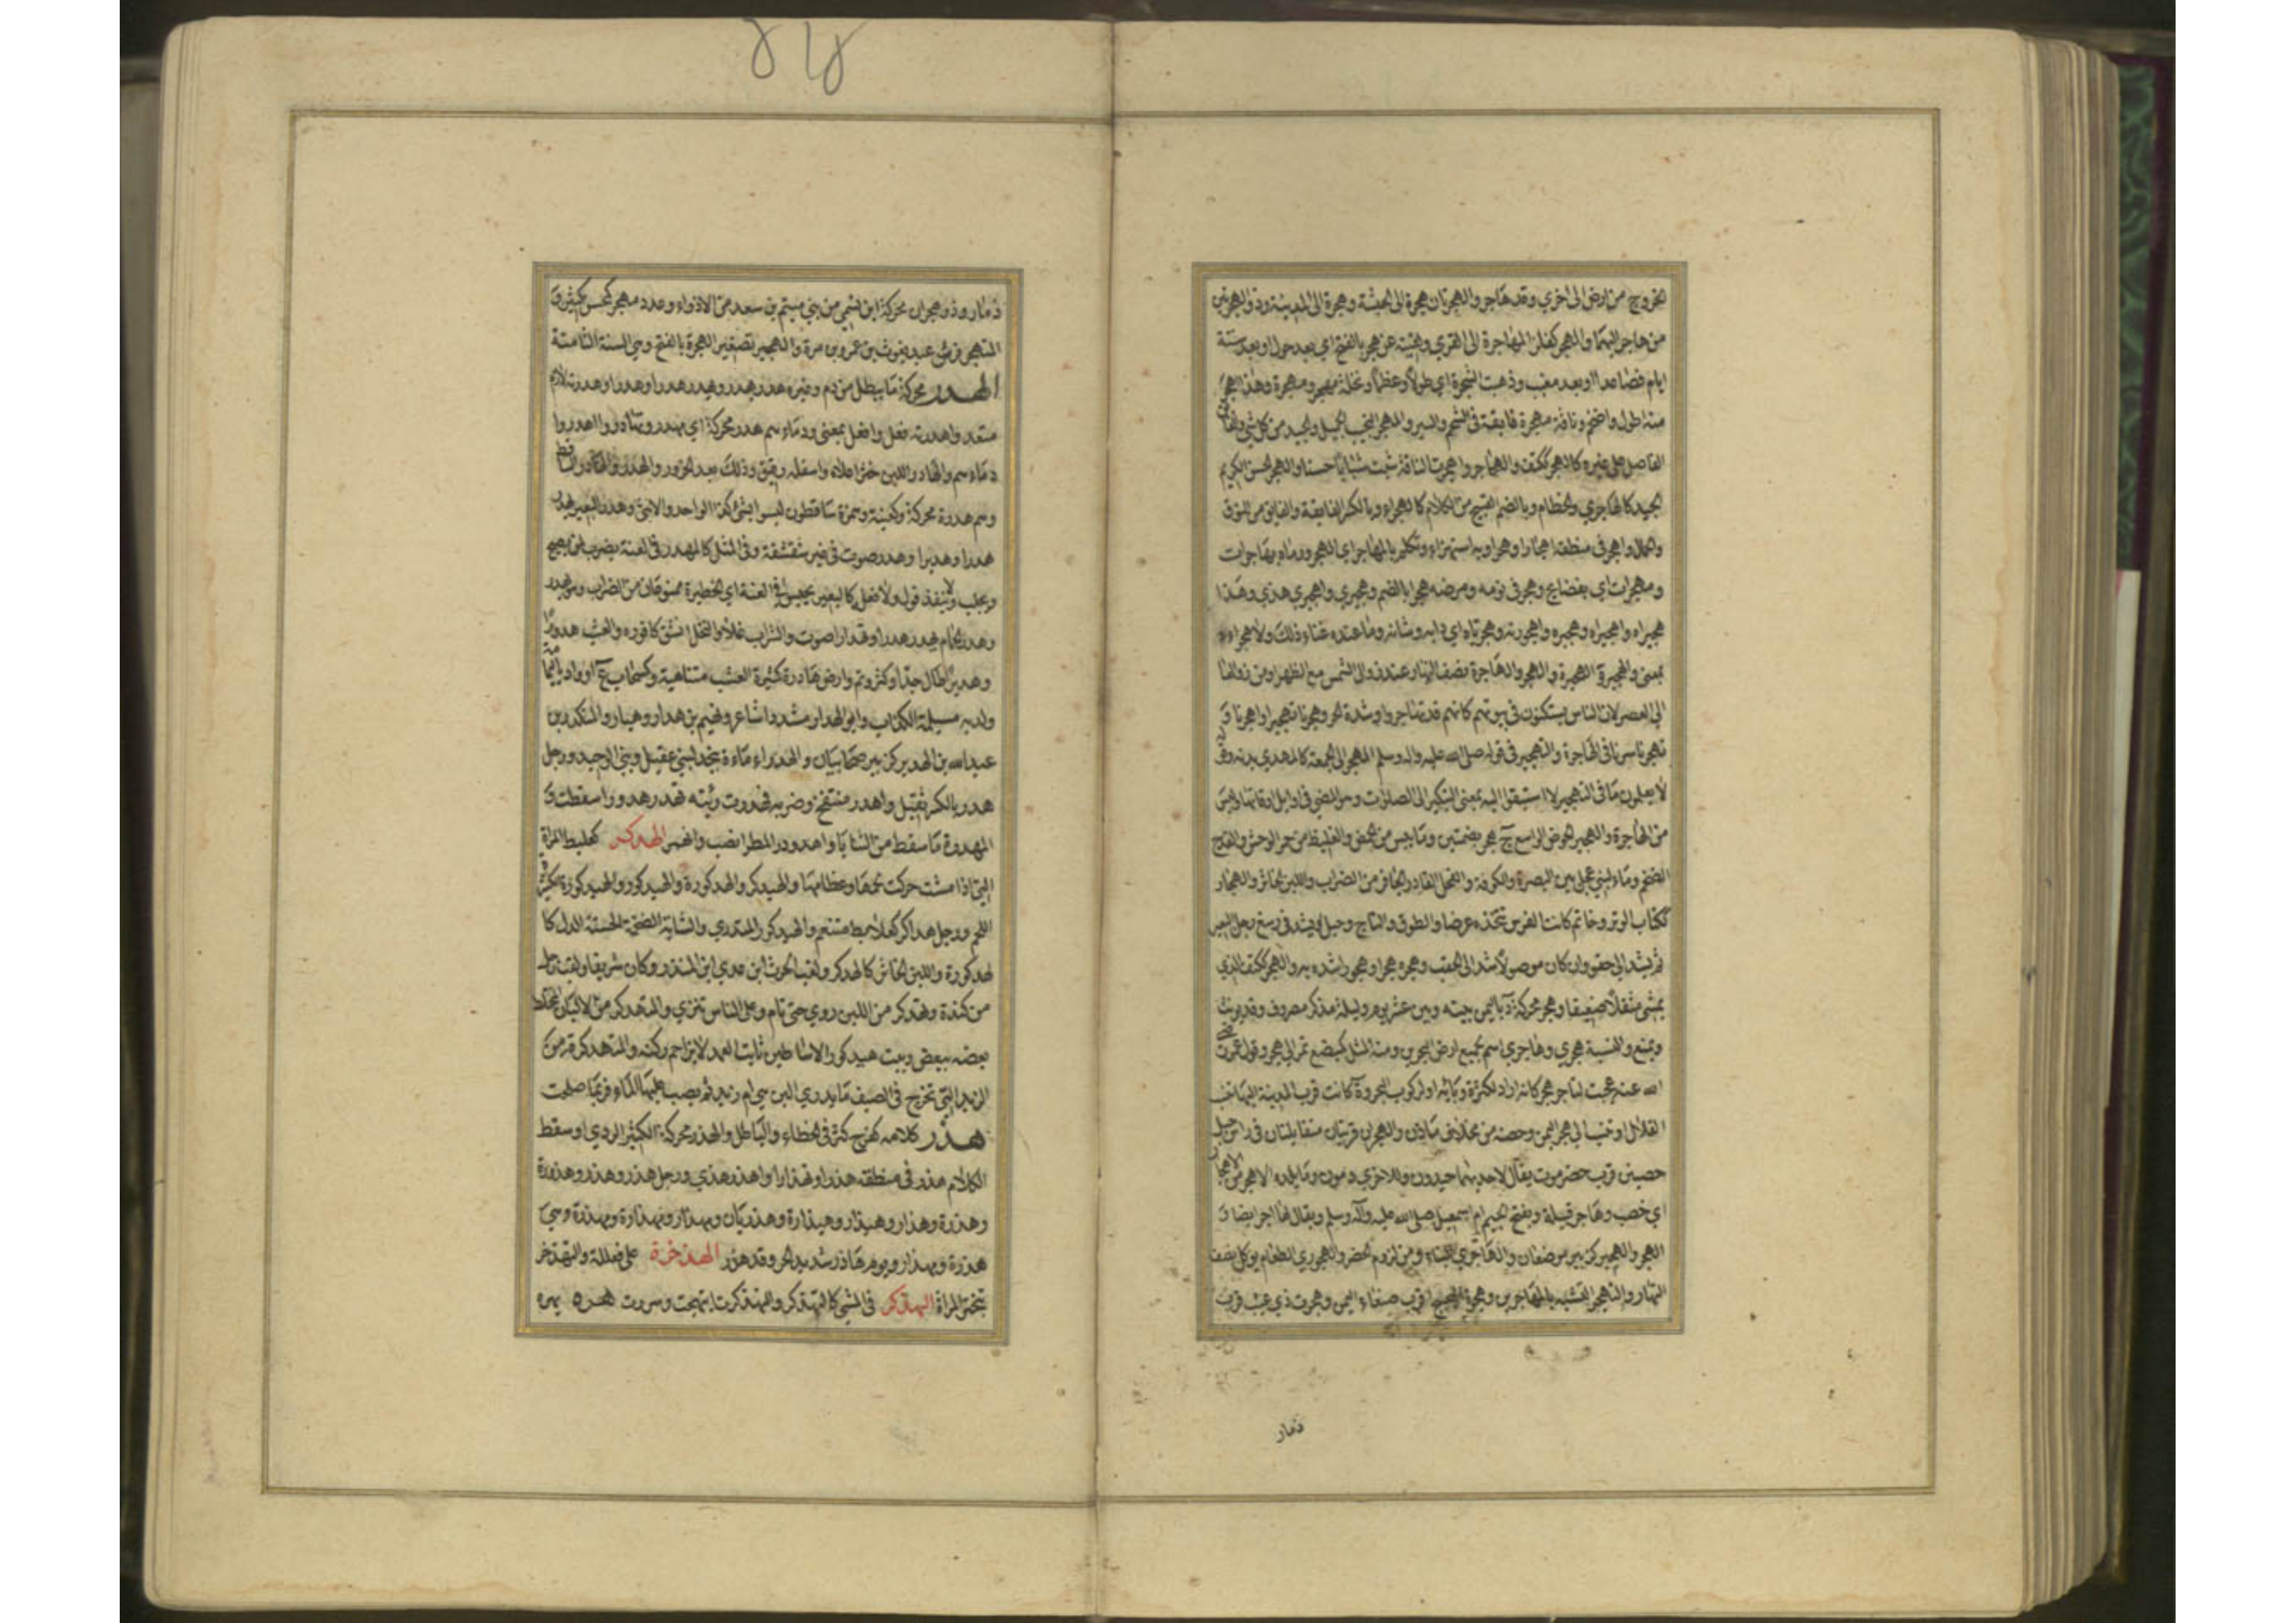 الخروج من ارض الى اخرى وقد هاجر والهجرتان هجرة الى الحبشة وهجرة الى المدينة وذو الهجرتين
من هاجر اليهما والهجر كفلز المهاجرة الى القرى ولقيته عن هجر بالفتح اي بعد حول او بعد ستة
ايام فصاعدا او بعد مغيب وذهبت الشجرة اي طولا وعظما ونخلة مهجر ومهجرة وهذا اهجر
منه اطول واضخم وناقة مهجرة فايقة في الشحم والسير والمهجر النجيب الجميل والجيد من كل شي
الفاضل على غيره كالهجر ككتف والهاجر واهجرت الناقة شبت شبابا حسنا والهجر الحسن الكريم
الجيد كالهاجري والخطام وبالضم القبيح من الكلام كالهجراء وبالكسر الفايقة والفايق من النوق
والجمال واهجر في منطقه اهجارا وهجرا وبه استهزاء وتكلم بالمهاجر اي الهجر ورماه بهاجرات
ومهجرات اي بفضايح وهجر في نومه ومرضه هجرا بالضم وهجيري واهجيري هذي وهذا
هجيراه واهجيراه وهجيره واهجورته وهجرياه اي دابه وشانه وما عنده غناء ذلك ولا هجراءه
بمعنى والهجيرة والهجير والهجر والهاجرة نصف النهار عند زوال الشمس مع الظهر او من زوالها
الى العصر لان الناس يستكنون في بيوتهم كانهم قد تهاجروا وشدة الحر وهجرنا تهجيرا واهجرنا و
تهجرنا سرنا في الهاجرة والتهجير في قوله صلى الله عليه واله وسلم المهجر الى الجمعة كالمهدي بدنة وقوله
لا يعلمون ما في التهجير لا استبقوا اليه بمعنى التبكير الى الصلوات وهو المضي في اوايل اوقاتها وليس
من الهاجرة والهجير الحوض الواسع ج هجر بضمتين وما يبس من الحمض والغليظ من حمر الوحش والقدح
الضخم وماء لبني عجل بين البصرة والكوفة والفحل الفادر الجافر من الضراب واللبن الخاثر والهجار
ككتاب الوتر وخاتم كانت الفرس تتخذه غرضا والطوق والتاج وحبل يشد في رسغ رجل البعير
ثم يشد الى حقوه وان كان موصولا شد الى الحقب وهجره هجرا وهجورا شده به والهجر ككتف الذي
يمشي مثقلا ضعيفا وهجر محركة د باليمن بينه وبين عثر يوم وليلة مذكر مصروف وقد يونث
ويمنع والنسبة هجري وهاجري اسم لجميع ارض البحرين ومنه المثل كمبضع تمر الى هجر وقول عمر رضي
الله عنه عجبت لتاجر هجر كانه اراد لكثرة وبائه او لركوب البحر وة كانت قرب المدينة اليها تنسب
القلال او تنسب الى هجر اليمن وحصنه من مخلاف مازن والهجران قريتان متقابلتان في راس جبل
حصين قرب حضرموت يقال لاحديهما خيدون وللاخرى دمون وما بلده الا هجر من الاهجار
اي خصب وهاجر قبيلة وبفتح الجيم ام اسمعيل صلى الله عليه وآله وسلم ويقال لها اجر ايضا و
الهجر والهجير كزبير موضعان والهاجري البناء ومن لزم الحضر والهجوري الطعام يوكل نصف
النهار والتهجر التشبه بالمهاجرين وهجرة البحيح قرب صنعاء اليمن وهجرت ذي غبب قرب
ذمار
٤١٤
ذمار وذو هجران محركة ابن نسمى من بني ميتم بن سعد من الاذواء وعدد مهجر كمحسن كثير و
المتهجر فرس عبد يغوث بن عمرو بن مرة والهجير تصغير الهجرة بالفتح وهي السنة التامة
الهدر محركة ما يبطل من دم وغيره هدر يهدر ويهدر هدرا وهدرا وهدرته لازم
متعد واهدرته فعل وافعل بمعنى ودماءهم هدر محركة اي مهدرة وتهادروا اهدروا
دماءهم والهادر اللبن خثر اعلاه واسفله رقيق وذلك بعد الحزور والهدر والهادر الساقط
وهم هدرة محركة وكعنبة وهمزة ساقطون ليسوا بشئ وكذا الواحد والانثى وهدر البعير يهدر
هدرا وهديرا وهدر صوت في غير شقشقة وفي المثل كالمهدر في العنة يضرب لمن يصيح
ويجلب ولا ينفذ قوله ولا فعله كالبعير يحبس في العنة اي الحظيرة ممنوعا من الضراب وهو يهدر
وهدر الحمام يهدر هدرا وتهدارا صوت والشراب غلا والنخل انشق كافوره والعشب هدورا
وهديرا طال جدا وكثر وتم وارض هادرة كثيرة العشب متناهية وكسحاب ع او واد باليمامة
ولد به مسيلمة الكذاب وابو الهدار مشددا شاعر ونعيم بن هدار وهبار والمنكدر بن
عبد الله بن الهدير كزبير صحابيان والهدراء ماءة بنجد لبني عقيل وبني الوحيد ورجل
هدر بالكسر ثقيل واهدر منتفخ وضربه فهدرت رئته تهدر هدورا سقطت و
المهدرة ما سقط من الثنايا واهدودر المطر انصب وانهمر الهدكر كعلبط المراة
التي اذا مشت حركت لحمها وعظامها والهيدكر والهدكورة والهيدكور والهيدكورة الكثيرة
اللحم ورجل هداكر كعلابط متنعم والهيدكور المتدري والشابة الضخمة الحسنة الدل كا
لهدكورة واللبن الخاثر كالهدكر ولقب الحرث ابن عدي ابن المنذر وكان شريفا ولقب رجل
من كندة وتهدكر من اللبن روي حتى نام وعلى الناس تنزى والمتهدكر من الالبان المختلط
بعضه ببعض وبيت هيدكور الاساطين ثابت العمد لا يزاحم ركنه والمتهدكرة من
الزبد التي تخرج في الصيف ما يدري البن هي ام زبد ثم يصب عليها الماء فربما صلحت
هذر كلامه كفرح كثر في الخطاء والباطل والهذر محركة الكثير الردي او سقط
الكلام هذر في منطقه هذرا وتهذارا واهذر هذي ورجل هذر وهذر وهذرة
وهذرة وهذار وهيذار وهيذارة وهذريان ومهذار ومهذارة ومهذرة وهي
هذرة ومهذار ويوم هاذر شديد الحر وقد هذر الهذخرة على فعللة والتهذخر
تبختر المراة التهذكر في المشي كالتهدكر والتهذكرت ابتهجت وسرت هره يهره